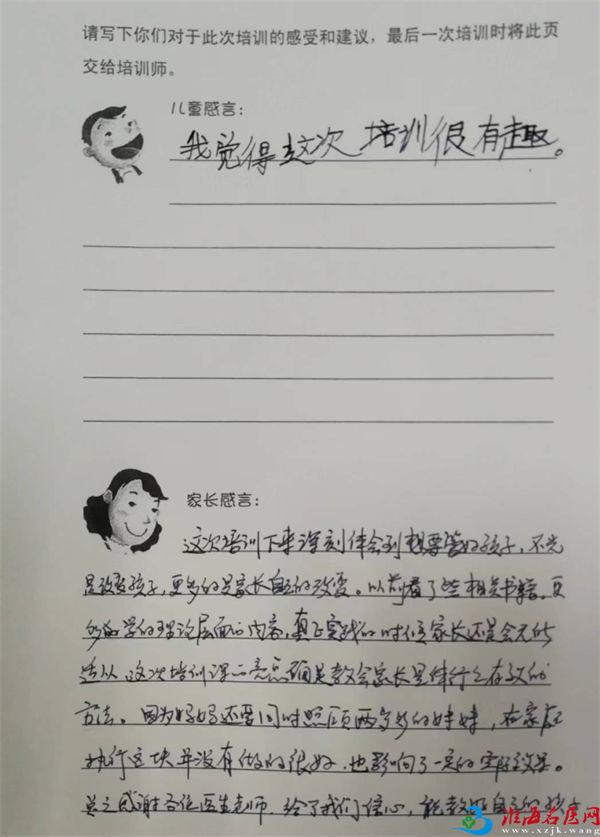 请写下你们对于此次培训的感受和建议，最后一次培训时将此页
交给培训师。
儿童感言：
我觉得这次 培训很有趣。
家长感言：
这次培训下来深刻体会到想要管好孩子，不光
是改变孩子，更多的是家长自己的改变。以前看了些相关书籍，更
多的学的理论层面的内容，真正实践的时候家长还是会无所
适从，这次培训课的亮点确是教会家长具体行之有效的
方法。因为妈妈还要同时照顾两岁多的妹妹，在家庭
执行这块并没有做的很好，也影响了一定的实际效果。
总之感谢各位医生老师，给了我们信心，能教好自己的孩
淮海名医网
www.szjk.wang